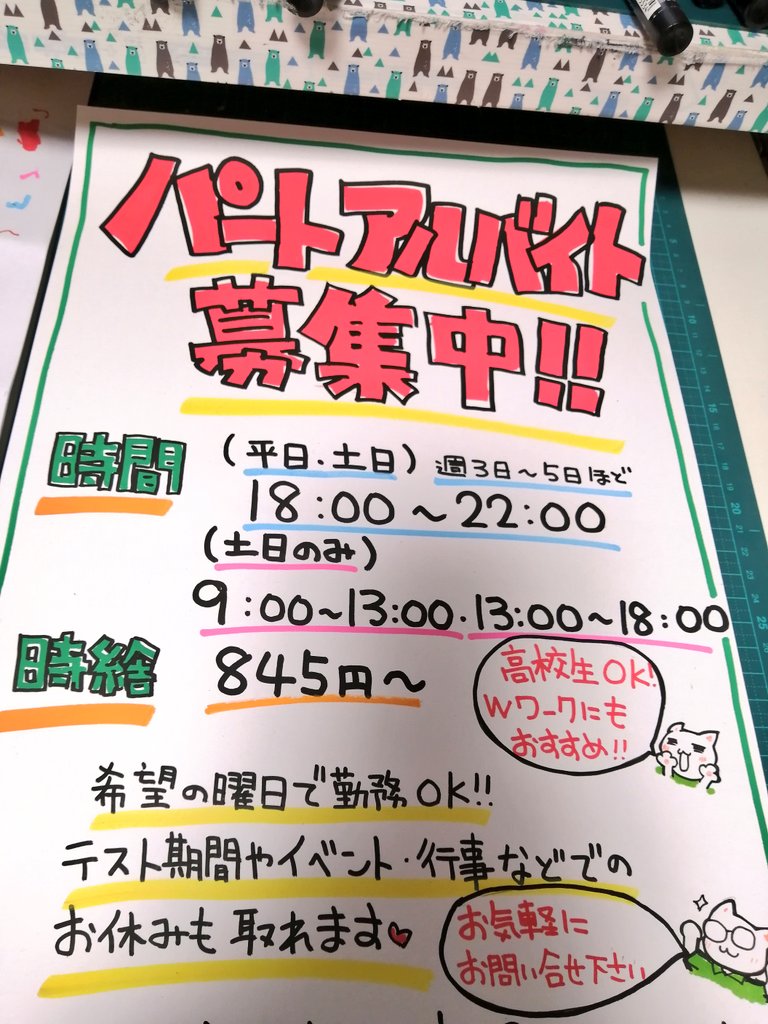 パートアルバイト
募集中!!
時間
(平日・土日) 週3日～5日ほど
18:00～22:00
(土日のみ)
9:00～13:00・13:00～18:00
時給
845円～
高校生OK!
Wワークにも
おすすめ!!
希望の曜日で勤務OK!!
テスト期間やイベント・行事などでの
お休みも取れます♥
お気軽に
お問い合せ下さい